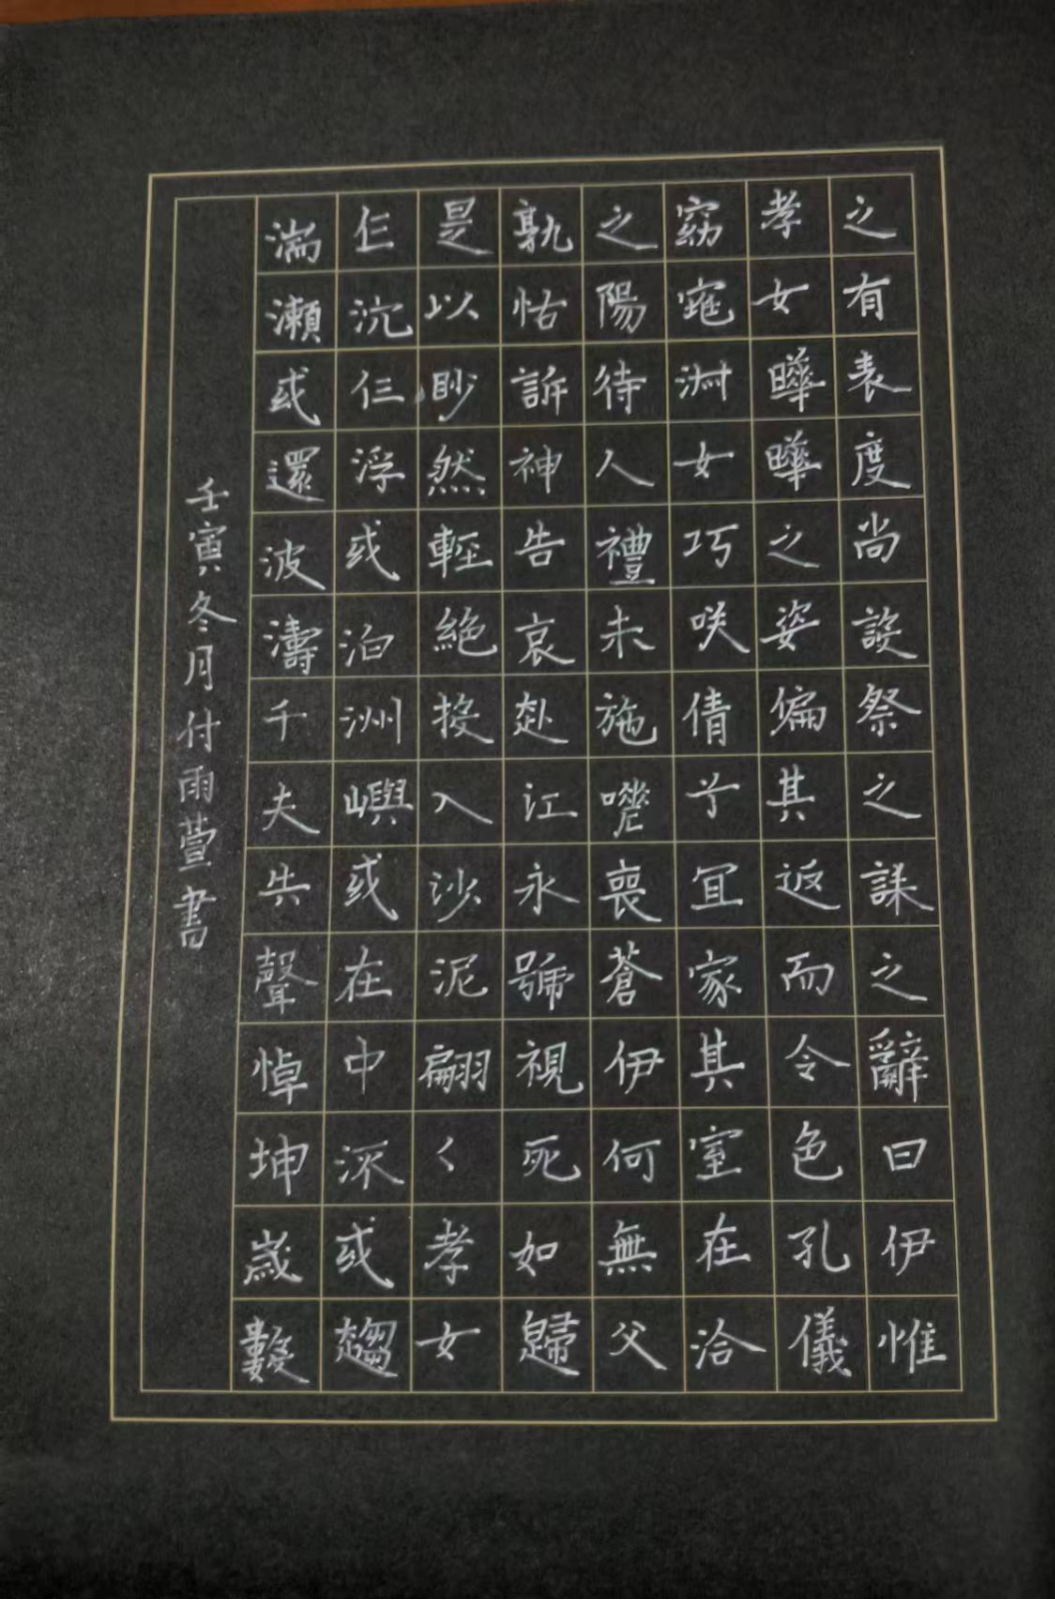 之有表度尚設祭之誄之辭曰伊惟
孝女曄曄之姿偏其返而令色孔儀
窈窕淑女巧咲倩兮宜家其室在洽
之陽待人禮未施嗟喪蒼伊何無父
孰怙訴神告哀赴江永號視死如歸
是以眇然輕絕投入沙泥翩〻孝女
仨沉仨浮或泊洲嶼或在中流或趨
湍瀨或還波濤千夫失聲悼坤歲數
壬寅冬月付雨萱書